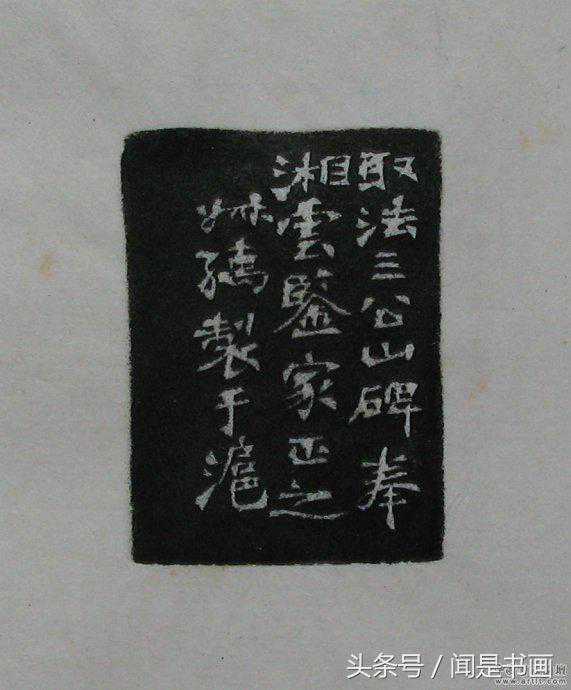 取法三公山碑奉
湘雲鑒家正之
叔孺製于滬
头条号 / 闻是书画